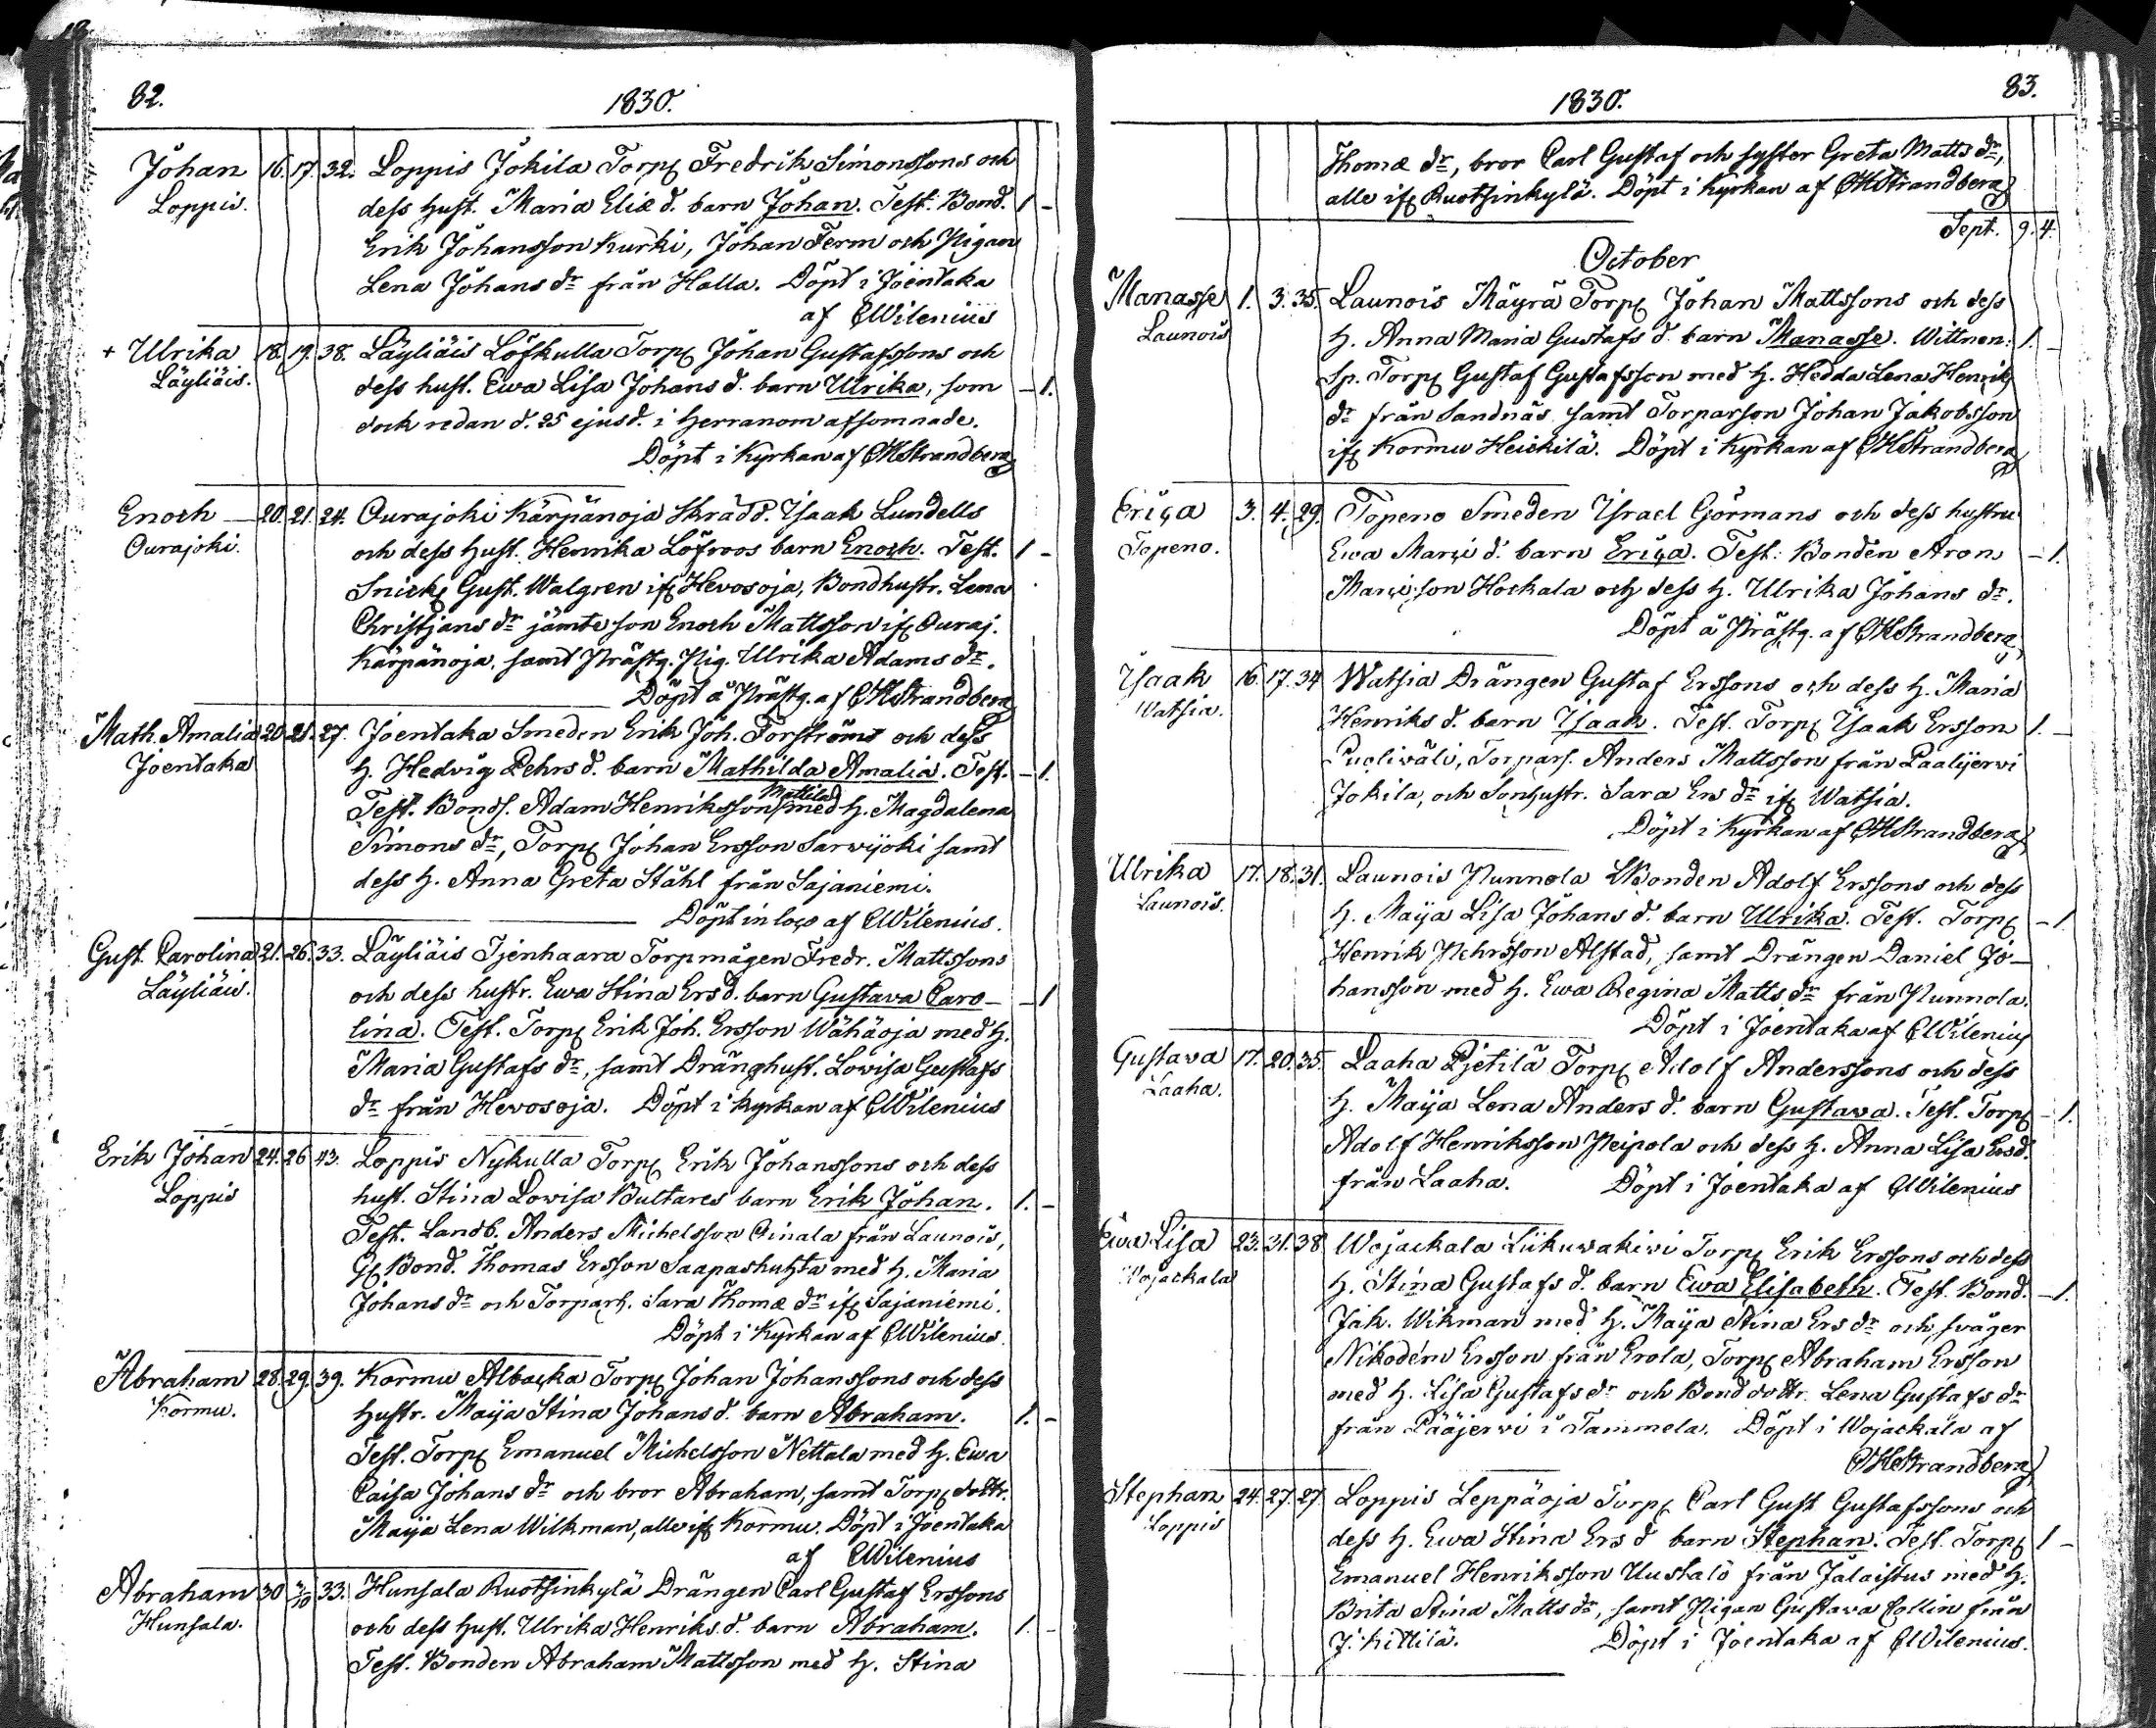 82.
1830.
Johan 16. 17. 32. Loppis Jokila Torp. Fredrik Simonssons och
Loppis. dess hust. Maria Eliæ d. barn Johan. Test. Bond. 1 -
Erik Johansson Kurki, Johan Ferm och Pigan
Lena Johans dr från Halla. Döpt i Joentaka
af CWilenius
+ Ulrika 18. 19. 38. Läyliäis Löfkulla Torp. Johan Gustafssons och
Läyliäis. dess hust. Ewa Lisa Johans d. barn Ulrika, som - 1.
dock redan d. 25 ejusd. i Herranom afsomnade.
Döpt i Kyrkan af CHStrandberg
Enoch 20. 21. 24. Ourajoki Kärpänoja Skrädd. Isaak Lundells
Ourajoki. och dess hust. Henrika Löfroos barn Enoch. Test. 1 -
Snick. Gust. Walgren if. Hevosoja, Bondhustr. Lena
Christjans dr jämte son Enoch Mattsson if. Ouraj.
Kärpänoja, samt Prästg. Pig. Ulrika Adams dr.
Döpt å Prästg. af CHStrandberg
Math. Amalia 20. 21. 27. Joentaka Smeden Erik Joh. Forströms och dess
Joentaka H. Hedvig Pehrs d. barn Mathilda Amalia. Test. - 1.
Mattila
Test. Bonds. Adam Henriksson med H. Magdalena
Simons dr, Torp. Johan Ersson Sarwijoki samt
dess H. Anna Greta Ståhl från Sajaniemi.
Döpt in loco af CWilenius.
Gust. Carolina 21. 26. 33. Läyliäis Tjenhaara Torpmågen Fredr. Mattssons
Läyliäis. och dess hustr. Ewa Stina Ers d. barn Gustava Caro- - 1
lina. Test. Torp. Erik Joh. Ersson Wähäoja med H.
Maria Gustafs dr, samt Dränghust. Lowisa Gustafs
dr från Hevosoja. Döpt i kyrkan af CWilenius
Erik Johan 24. 26 43. Loppis Nykulla Torp. Erik Johanssons och dess
Loppis hust. Stina Lowisa Bultares barn Erik Johan. 1. -
Test. Landb. Anders Michelsson Oinala från Launois,
G. Bond. Thomas Ersson Saapashuhta med H. Maria
Johans dr och Torparh. Sara Thomæ dr if. Sajaniemi.
Döpt i Kyrkan af CWilenius.
Abraham 28. 29. 39. Kormu Albacka Torp. Johan Johanssons och dess
Kormu. hustr. Maija Stina Johans d. barn Abraham. 1. -
Test. Torp. Emanuel Michelsson Nettala med H. Ewa
Caisa Johans dr och bror Abraham, samt Torp. dottr.
Maija Lena Wilkman, alle if. Kormu. Döpt i Joentaka
af CWilenius
Abraham 30 3/10 33. Hunsala Ruotsinkylä Drängen Carl Gustaf Erssons
Hunsala. och dess hust. Ulrika Henriks d. barn Abraham. 1. -
Test. Bonden Abraham Mattsson med H. Stina
83.
1830.
Thomæ dr, bror Carl Gustaf och syster Greta Matts dr,
alle if. Ruotsinkylä. Döpt i Kyrkan af CHStrandberg
Sept. 9. 4.
October
Manasse 1. 3. 35. Launois Mäyrä Torp. Johan Mattssons och dess
Launois H. Anna Maria Gustafs d. barn Manasse. Wittnen: 1. -
Sp. Torp. Gustaf Gustafsson med H. Hedda Lena Henriks
dr från Sandnäs samt Torparson Johan Jakobsson
if. Kormu Heickilä. Döpt i Kyrkan af CHStrandberg
Erica 3. 4. 29. Topeno Smeden Israel Görmans och dess hustru
Topeno. Ewa Marci d. barn Erica. Test. Bonden Aron - 1.
Marcisson Hockala och dess H. Ulrika Johans dr.
Döpt å Prästg. af CHStrandberg
Isaak 16. 17. 34 Watsia Drängen Gustaf Erssons och dess H. Maria
Watsia. Henriks d. barn Isaak. Test. Torp. Isaak Ersson 1. -
Puoliwäli, Torpars. Anders Mattsson från Paalijerwi
Jokila, och Sonhustr. Sara Ers dr if. Watsia.
Döpt i Kyrkan af CHStrandberg
Ulrika 17. 18. 31. Launois Nunnola LBonden Adolf Erssons och dess
Launois. H. Maija Lisa Johans d. barn Ulrika. Test. Torp. - 1
Henrik Pehrsson Alstad, samt Drängen Daniel Jo-
hansson med H. Ewa Regina Matts dr från Nunnola.
Döpt i Joentaka af CWilenius
Gustava 17. 20. 35. Laaha Pjetilä Torp. Adolf Anderssons och dess
Laaha. H. Maija Lena Anders d. barn Gustava. Test. Torp. - 1.
Adolf Henriksson Peipola och dess H. Anna Lisa Ersd.
från Laaha. Döpt i Joentaka af CWilenius
Ewa Lisa 23. 31. 38 Wojackala Liikuwakiwi Torp. Erik Erssons och dess
Wojackala H. Stina Gustafs d. barn Ewa Elisabeth. Test. Bond. - 1.
Jak. Wikman med H. Maija Stina Ers dr och svåger
Nikodém Ersson från Erola, Torp. Abraham Ersson
med H. Lisa Gustafs dr och Bonddottr. Lena Gustafs dr
från Pääjerwi i Tammela. Döpt i Wojackala af
CHStrandberg
Stephan 24. 27. 27 Loppis Leppäoja Torp. Carl Gust Gustafssons och
Loppis dess H. Ewa Stina Ers d barn Stephan. Test. Torp. 1 -
Emanuel Henriksson Uustalo från Jälaistus med H.
Brita Stina Matts dr, samt Pigan Gustava Collin från
J. Kittilä. Döpt i Joentaka af CWilenius.